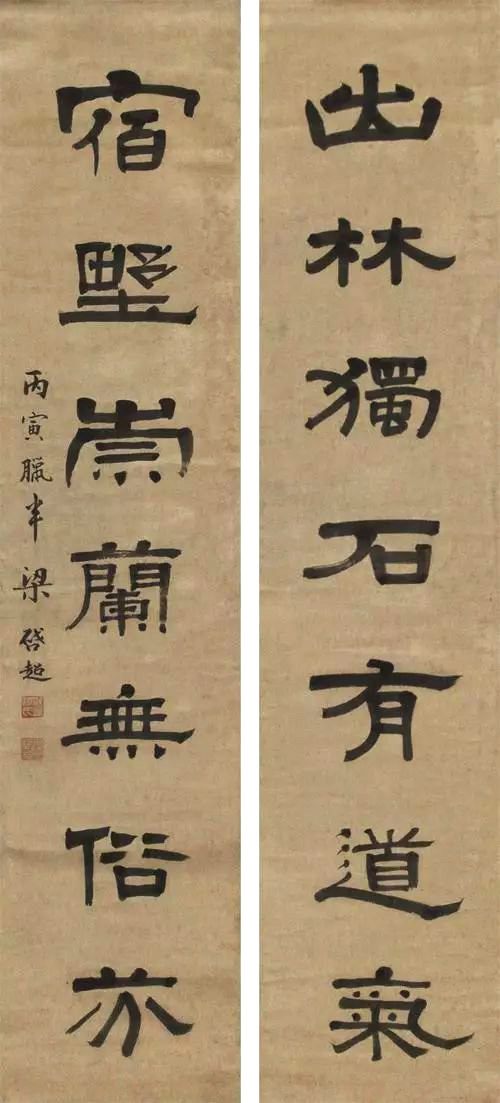 出林獨石有道氣
宿墅崇蘭無俗
丙寅臘半梁啓超